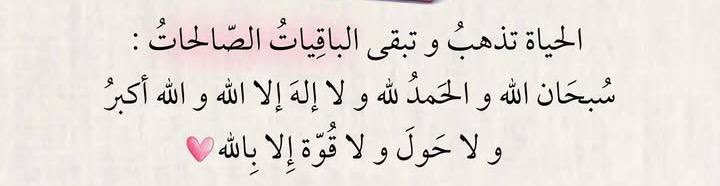 الحياة تذهبُ و تبقى الباقِياتُ الصّالحاتُ :
سُبحَان الله و الحَمدُ لله و لا إلهَ إلا الله و الله أكبرُ
و لا حَولَ و لا قُوّة إِلا بِالله🩷